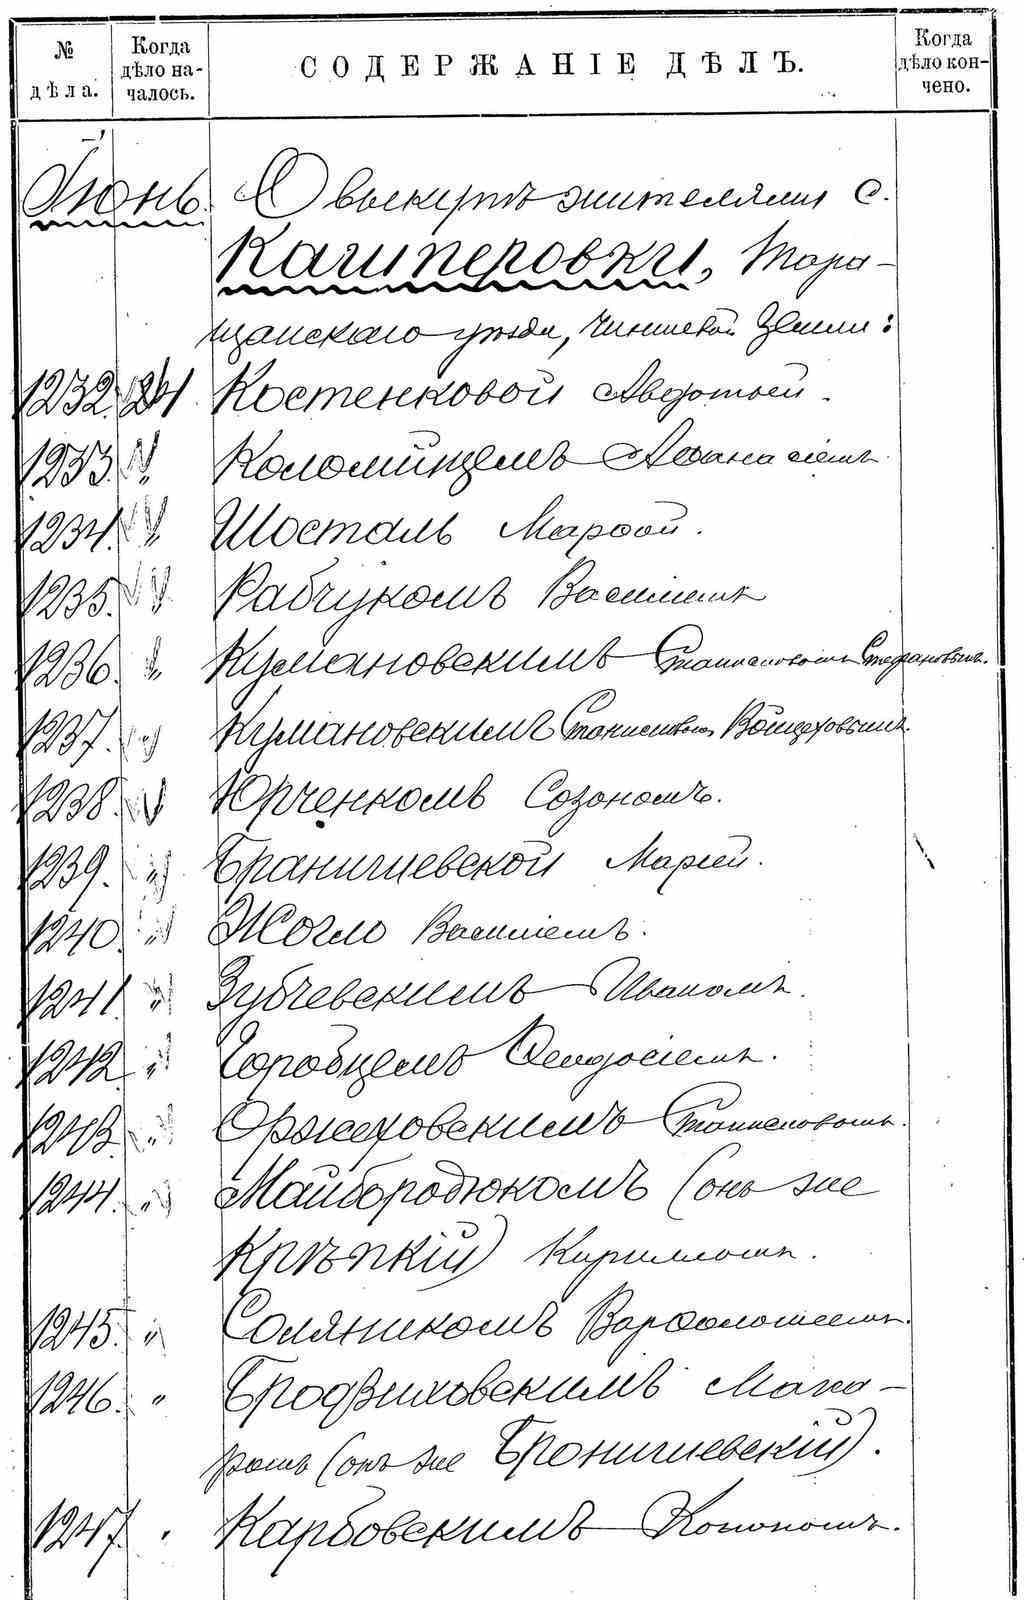 № дѣла.
Когда дѣло на-чалось.
СОДЕРЖАНІЕ ДѢЛЪ.
Когда дѣло кон-чено.
Іюнь. О выкупѣ жителями с.
Кашперовки, Тара-
щанскаго уѣзда, чиншевой земли:
1232. 24 Костенковой Авдотьей.
1233. " Коломійцемъ Аѳанасіемъ.
1234. " Шосталь Марѳой.
1235. " Рабчукомъ Василіемъ
1236. " Кумановскимъ Станиславомъ Стефановымъ.
1237. " Кумановскимъ Станиславомъ Войцеховымъ.
1238. " Юрченкомъ Созономъ.
1239. " Браничиевской Маріей.
1240. " Жогло Василіемъ.
1241. " Зубчевскимъ Иваномъ.
1242. " Горобцемъ Ѳеодосіемъ.
1243. " Оржеховскимъ Станиславомъ.
1244. " Майбородюкомъ (онъ же
Крѣпкій) Кирилломъ.
1245. " Соляникомъ Варѳоломеемъ.
1246. " Бродзиховскимъ Мака-
ромъ (онъ же Броничиевскій).
1247. " Карбовскимъ Конономъ.